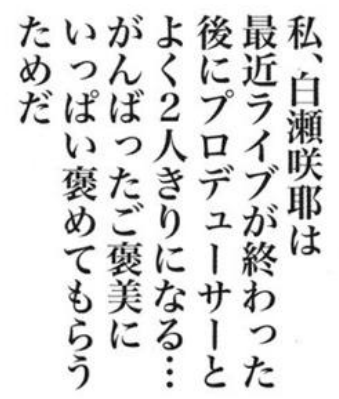 私、白瀬咲耶は
最近ライブが終わった
後にプロデューサーと
よく2人きりになる…
がんばったご褒美に
いっぱい褒めてもらう
ためだ